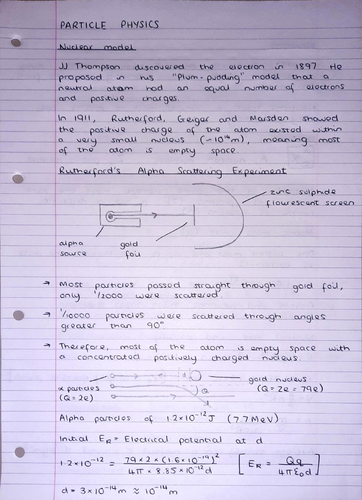 PARTICLE PHYSICS
Nuclear model
JJ Thompson discovered the electron in 1897. He
proposed in his "Plum-pudding" model that a
neutral atom had an equal number of electrons
and positive charges.
In 1911, Rutherford, Geiger and Marsden showed
the positive charge of the atom existed within
a very small nucleus (~10⁻¹⁴m), meaning most
of the atom is empty space.
Rutherford's Alpha Scattering Experiment
zinc sulphide
flourescent screen
alpha
source
gold
foil
→ Most particles passed straight through gold foil,
only 1/2000 were scattered.
→ 1/10000 particles were scattered through angles
greater than 90°
→ Therefore, most of the atom is empty space with
a concentrated positively charged nucleus.
d
α particles
(Q = 2e)
Q
gold nucleus
(Q = Ze = 79e)
Alpha particles of 1.2×10⁻¹² J (7.7 MeV)
Initial E_R = Electrical potential at d
1.2×10⁻¹² = 79 × 2 × (1.6×10⁻¹⁹)² / 4π × 8.85×10⁻¹² d [E_R = Qq / 4πε₀d]
d = 3×10⁻¹⁴m ≈ 10⁻¹⁴m